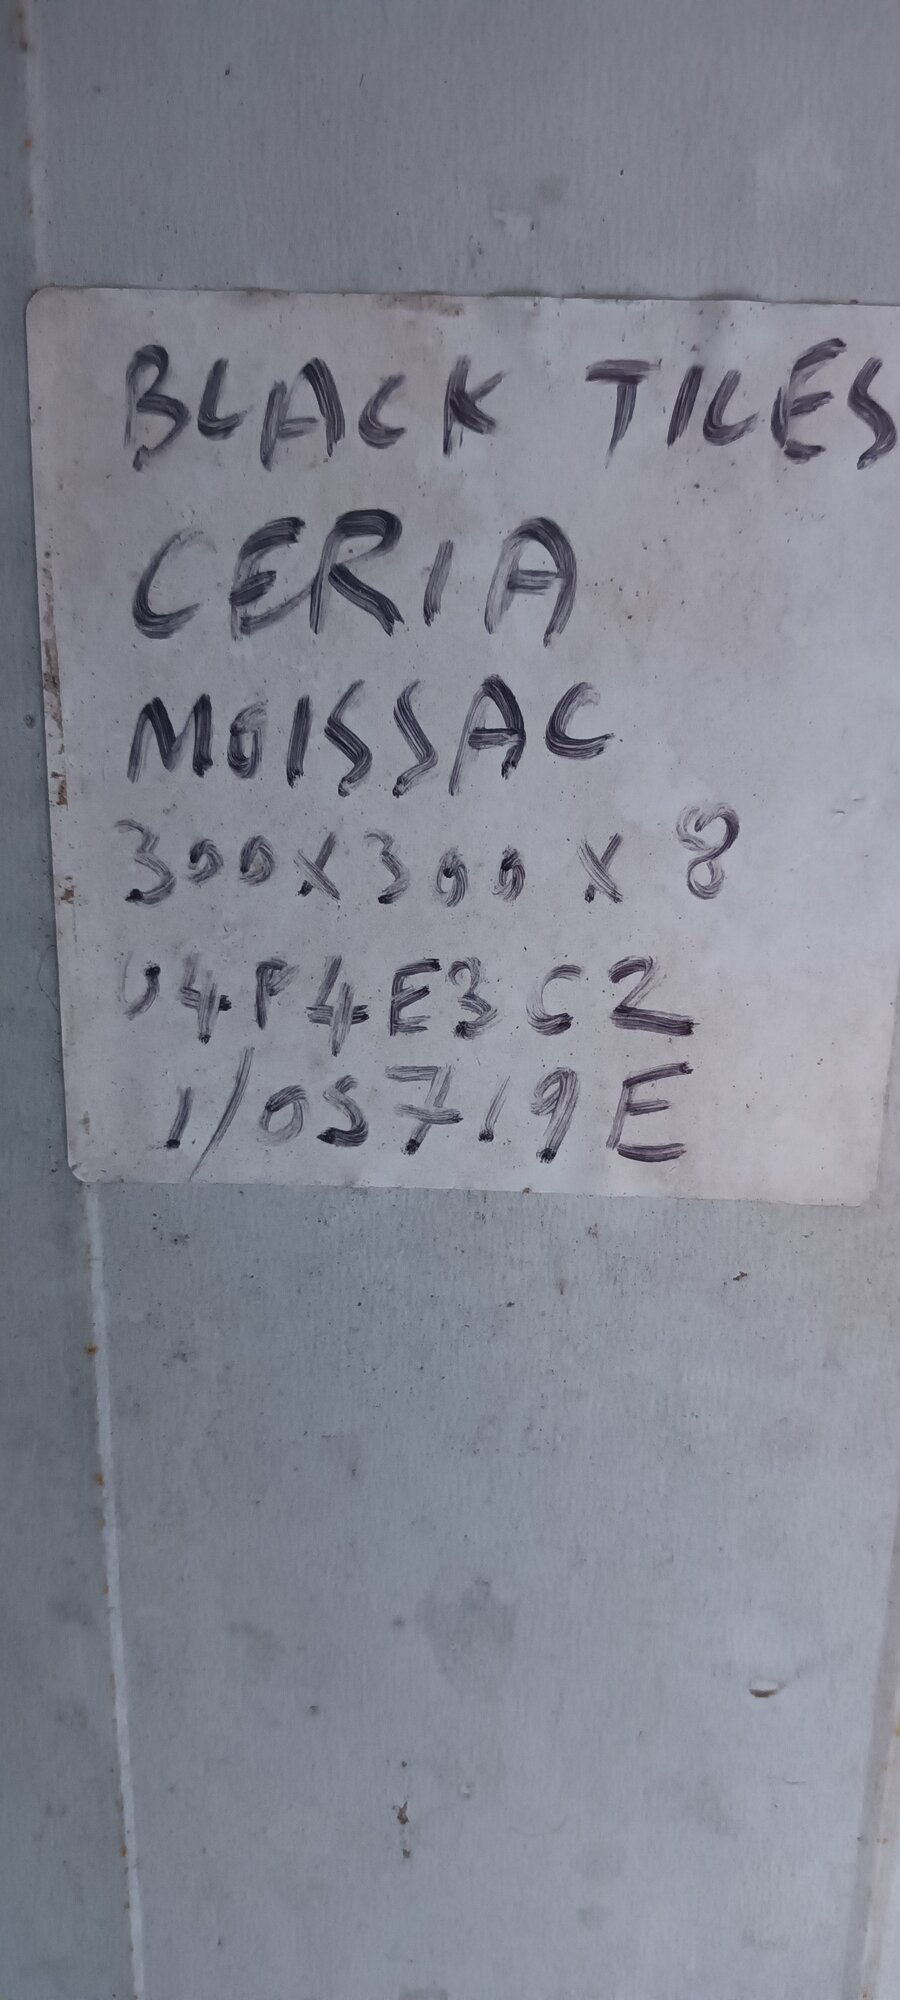 BLACK TILES
CERIA
MOISSAC
300x300 x 8
U4P4E3C2
1/05719E